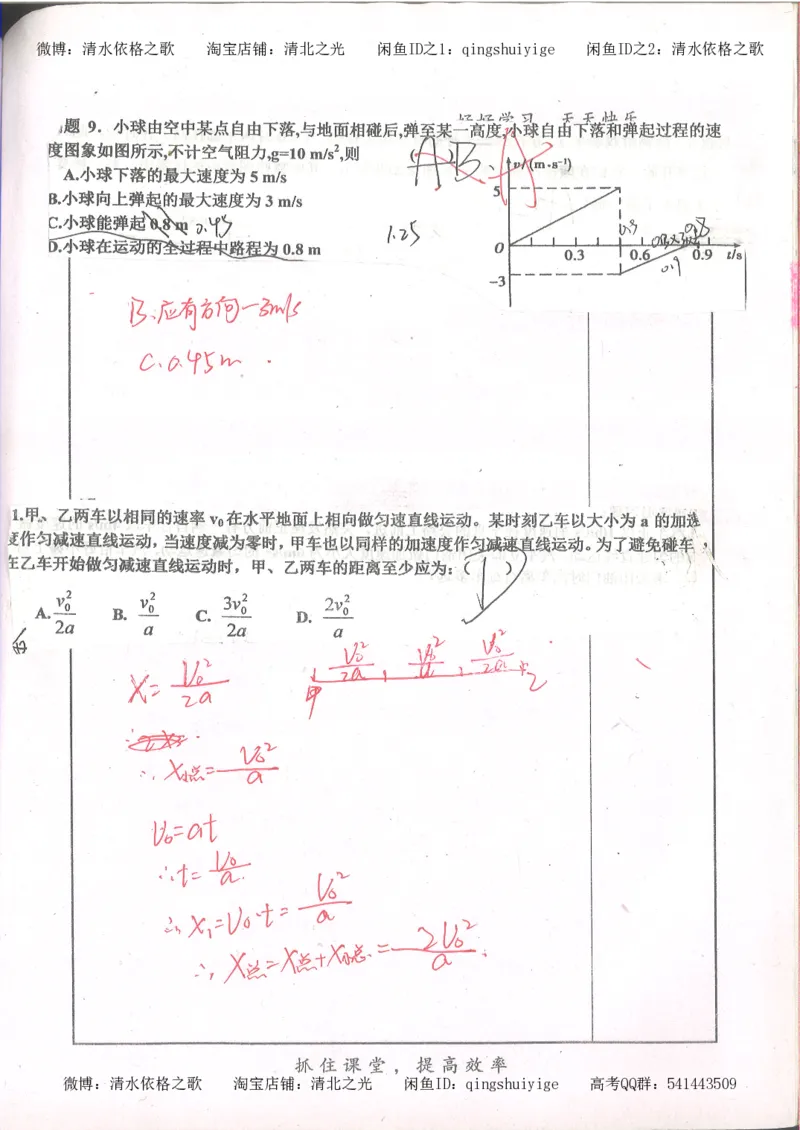 微博：清水依格之歌 淘宝店铺：清北之光 闲鱼ID之1：qingshuiyige 闲鱼ID之2：清水依格之歌
好好学习 天天快乐
题 9．小球由空中某点自由下落,与地面相碰后,弹至某一高度,小球自由下落和弹起过程的速
度图象如图所示,不计空气阻力,g=10 m/s²,则 ( )
AB
A
A.小球下落的最大速度为 5 m/s
B.小球向上弹起的最大速度为 3 m/s
C.小球能弹起 0.8 m 0.45
D.小球在运动的全过程中路程为 0.8 m
1.25
v/(m·s⁻¹)
5
O 0.3 0.6 0.9 t/s
-3
0.3
0.8
0.9
B.应有方向-3m/s
C.0.45m
1.甲、乙两车以相同的速率 v₀ 在水平地面上相向做匀速直线运动。某时刻乙车以大小为 a 的加速
度作匀减速直线运动，当速度减为零时，甲车也以同样的加速度作匀减速直线运动。为了避免碰车，
在乙车开始做匀减速直线运动时，甲、乙两车的距离至少应为：( D )
A. v₀²/2a B. v₀²/a C. 3v₀²/2a D. 2v₀²/a
x= v₀²/2a
甲 v₀²/2a , v₀²/a , v₀²/2a 乙
∴ x总= v₀²/a
v₀=at
∴t= v₀/a
∴ x₁=v₀·t= v₀²/a
∴ x总=x总+x总= 2v₀²/a
抓住课堂，提高效率
微博：清水依格之歌 淘宝店铺：清北之光 闲鱼ID：qingshuiyige 高考QQ群：541443509